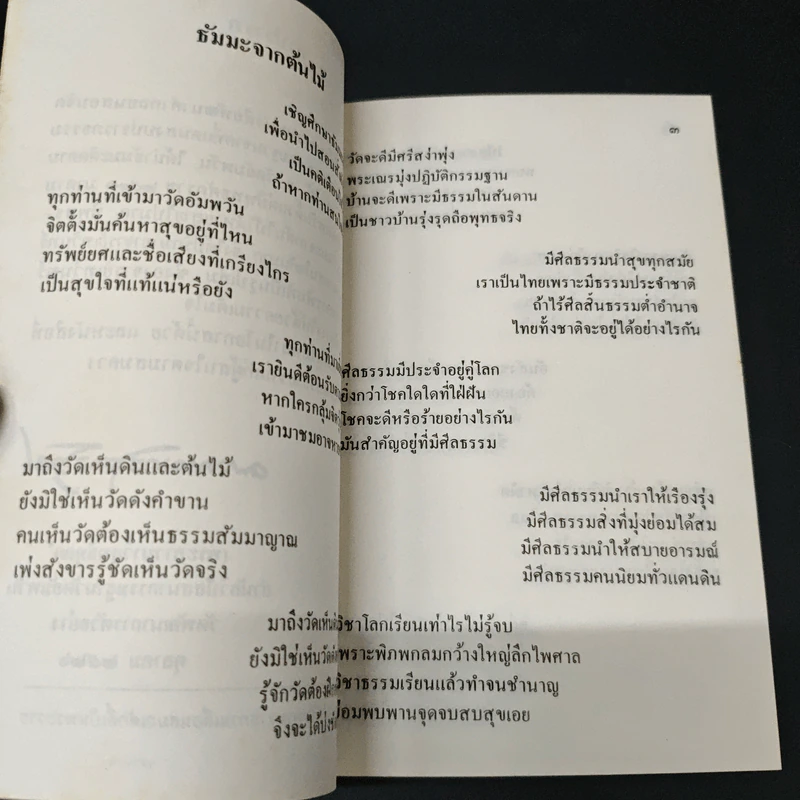 ธัมมะจากต้นไม้
เชิญศึกษา
เพื่อนำไปสอน
เป็นคติเตือน
ถ้าหากท่าน
ทุกท่านที่เข้ามาวัดอัมพวัน
จิตตั้งมั่นค้นหาสุขอยู่ที่ไหน
ทรัพย์ยศและชื่อเสียงที่เกรียงไกร
เป็นสุขใจที่แท้แน่หรือยัง
ทุกท่านที่มา
เรายินดีต้อนรับ
หากใครกลุ้ม
เข้ามาชมอาจ
มาถึงวัดเห็นดินและต้นไม้
ยังมิใช่เห็นวัดดังคำขาน
คนเห็นวัดต้องเห็นธรรมสัมมาญาณ
เพ่งสังขารรู้ชัดเห็นวัดจริง
มาถึงวัดเห็น
ยังมิใช่เห็นวัด
รู้จักวัดต้อง
จึงจะได้
๓
วัดจะดีมีศรีสง่าพุ่ง
พระเณรมุ่งปฏิบัติกรรมฐาน
บ้านจะดีเพราะมีธรรมในสันดาน
เป็นชาวบ้านรุ่งรุดถือพุทธจริง
มีศีลธรรมนำสุขทุกสมัย
เราเป็นไทยเพราะมีธรรมประจำชาติ
ถ้าไร้ศีลสิ้นธรรมต่ำอำนาจ
ไทยทั้งชาติจะอยู่ได้อย่างไรกัน
ศีลธรรมมีประจำอยู่คู่โลก
ยิ่งกว่าโชคใดใดที่ใฝ่ฝัน
โชคจะดีหรือร้ายอย่างไรกัน
มันสำคัญอยู่ที่มีศีลธรรม
มีศีลธรรมนำเราให้เรืองรุ่ง
มีศีลธรรมสิ่งที่มุ่งย่อมได้สม
มีศีลธรรมนำให้สบายอารมณ์
มีศีลธรรมคนนิยมทั่วแดนดิน
วิชาโลกเรียนเท่าไรไม่รู้จบ
เพราะพิภพกลมกว้างใหญ่ลึกไพศาล
วิชาธรรมเรียนแล้วทำจนชำนาญ
ย่อมพบพานจุดจบสบสุขเอย